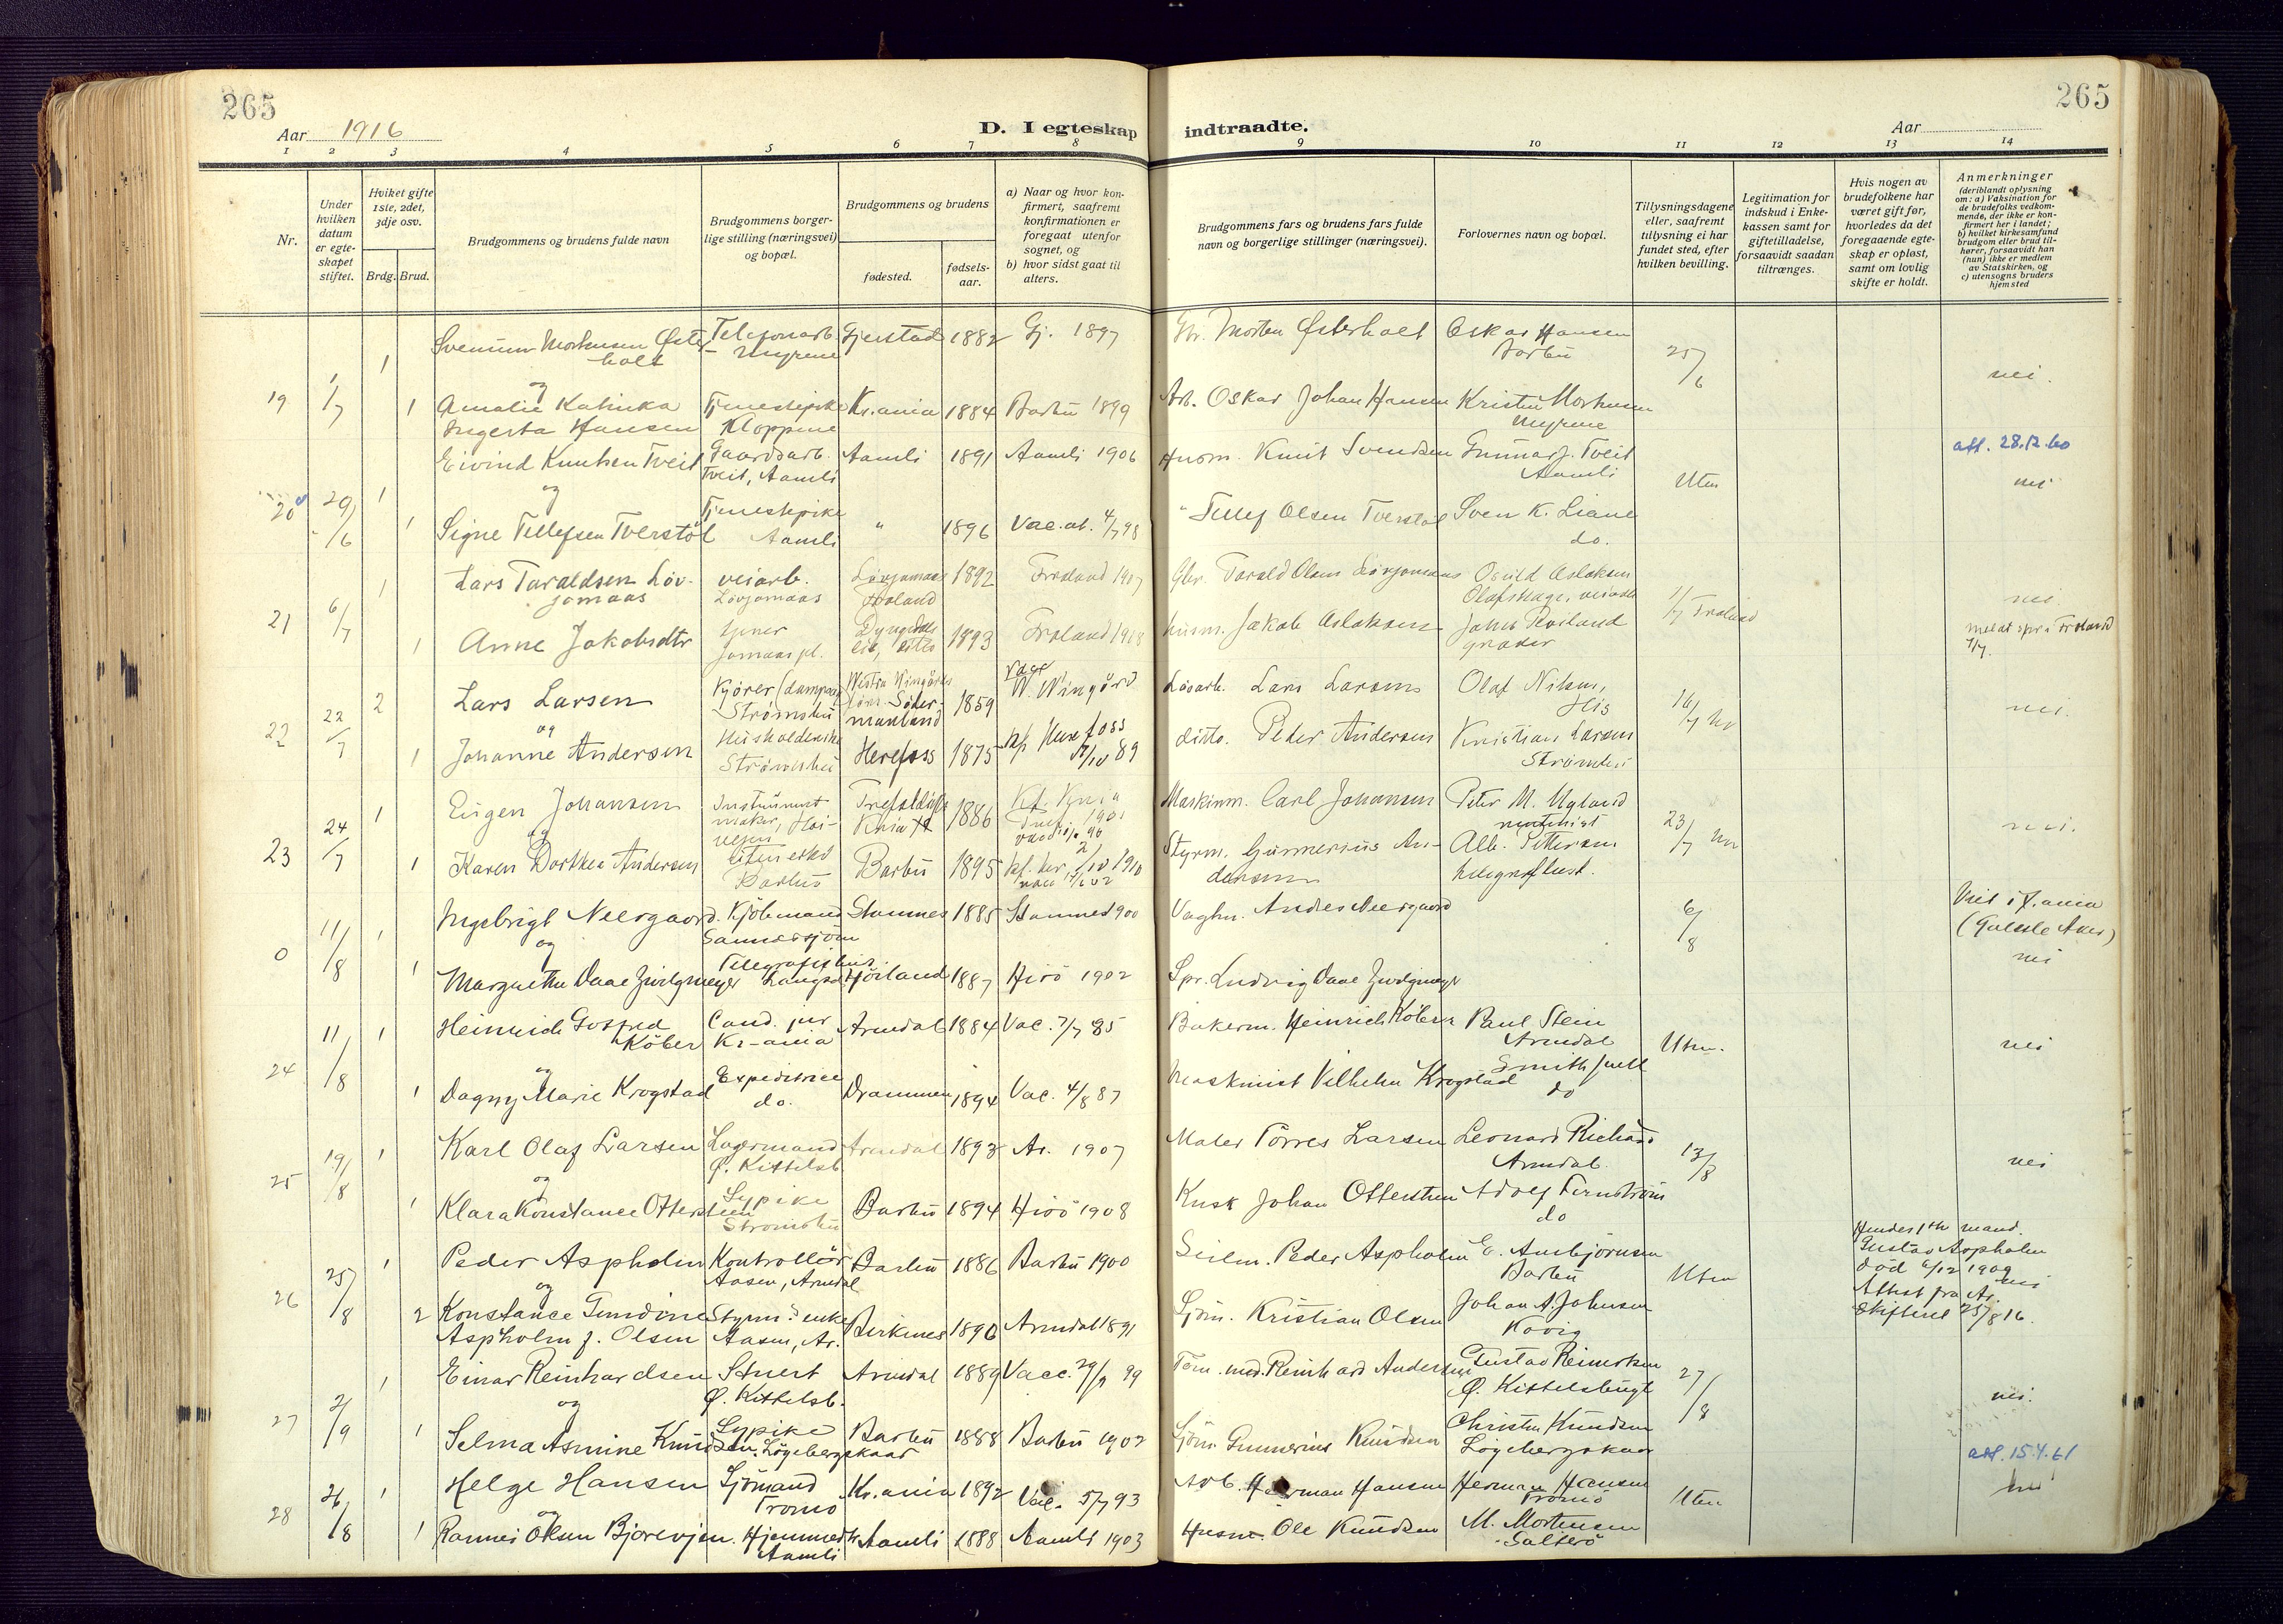 265
265
Aar 1916
D. I egteskap indtraadte.
Aar
1 2 3 4 5 6 7 8 9 10 11 12 13 14
Nr.
Under hvilken datum er egteskapet stiftet.
Hvilket gifte 1ste, 2det, 3dje osv.
Brdg. Brud.
Brudgommens og brudens fulde navn
Brudgommens borgerlige stilling (næringsvei) og bopæl.
Brudgommens og brudens
fødested.
fødselsaar.
a) Naar og hvor konfirmert, saafremt konfirmationen er foregaat utenfor sognet, og
b) hvor sidst gaat til alters.
Brudgommens fars og brudens fars fulde navn og borgerlige stillinger (næringsvei).
Forlovernes navn og bopæl.
Tillysningsdagene eller, saafremt tillysning ei har fundet sted, efter hvilken bevilling.
Legitimation for indskud i Enkekassen samt for giftetilladelse, forsaavidt saadan tiltrænges.
Hvis nogen av brudefolkene har været gift før, hvorledes da det foregaaende egteskap er opløst, samt om lovlig skifte er holdt.
Anmerkninger
(deriblandt oplysning om: a) Vaksination for de brudefolks vedkommende, der ikke er konfirmert her i landet; b) hvilket kirkesamfund brudgom eller brud tilhører, forsaavidt han (hun) ikke er medlem av Statskirken, og c) utensogns bruders hjemsted
Telefonarb. Gjerstad 1882 Gj. 1897 Morten Østerholt Oskar Hansen
holt Myrene Barbu 25/6
19 1/7 1 1 og nei.
Amalie Katinka Tjenestepike Kr.ania 1884 Barbu 1899 Arb. Oskar Johan Hansen Kristen Mortensen
Hansen Kloppene Myrene
Eivind Knutsen Tveit Gaardsarb. Aamli 1891 Aamli 1906 Husm. Knut Svendsen Gunnar J. Tveit att. 28.12.60
Tveit, Aamli Aamli Uten nei
20 29/6 1 1 og Tjenestepike
Signe Tellefsen Tverstøl Aamli " 1896 Vac. at. 4/7 98 " Tellef Olsen Tverstøl Sven K. Liane
do.
Lars Taraldsen Løvjomaas veiarb. Løvjomaas 1892 Froland 1907 Gbr. Tarald Olsen Løvjomaas Osuld Aslaksen
Løvjomaas Froland
21 6/7 1 1 1/7 Froland nei
Anne Jakobsdtr tjener 1893 Froland 1908 husm. Jakob Aslaksen
Jomaas pl. Froland
7/7.
Lars Larsen Kjører Södermanland 1859 Løsarb. Lars Larsens Olaf Nilsen,
Strømsbu His 16/7 nei.
22 22/7 2 1 og
Johanne Andersen Strømsbu Herefoss 1875 kf. Herefoss ditto. Peder Andersen Kristian Larsen
Strømsbu
Eugen Johansen Instrumentmaker 1886 1901 Maskinm. Carl Johansen Peter M. Ugland
23 24/7 1 1 og 23/7 nei.
Karen Dorthea Andersen Barbu Barbu 1895 1910 Styrm. Gunnerius Andersen Alb. Pettersen
telegrafbest.
Ingebrigt Neergaard. Kjøbmand Stamnes 1885 Stamnes 1900 Andres Neergaard 6/8 Viet i Kr.ania
Sannessjøen (Gamle Aker)
0 11/8 1 1 og nei
Margrethe Daae Zwilgmeyer 1887 Hisö 1902 Spr. Ludvig Daae Zwilgmeyer
Heinrich Gotfred Cand. jur Arendal 1884 Vac. 7/7 85 Bakerm. Heinrich Köber Paul Stein
Köber Kr-ania Arendal Uten. nei
24 11/8 1 1 og
Dagny Marie Krogstad Expeditrice Drammen 1894 Vac. 4/8 87 Maskinist Vilhelm Krogstad Smith Juell
do. do
Karl Olaf Larsen Lagermand Arendal 1893 Ar. 1907 Maler Törres Larsen Leonard Richard
Ø. Kittelsb. Arendal. 13/8 nei
25 19/8 1 1 og
Klara Konstance Ottersteen Sypike Barbu 1894 Hisö 1908 Kusk Johan Ottersteen Adolf Fernström
Strømsbu do
Peder Aspholm Kontrollör Barbu 1886 Barbu 1900 Seilm. Peder Aspholm E. Ausbjörnsen
Aasen, Arendal Barbu Uten
Hendes 1ste mand.
Gustav Aspholm
död 6/12 1909 nei
Attest fra Ar.
skifteret 25/8 16.
26 25/8 1 2 og
Konstance Tomine Styrm.s enke Birkenes 1890 Arendal 1891 Sjøm. Kristian Olsen Johan A. Johnsen
Aspholm f. Olsen Aasen, Ar. Kovig
Einar Reinhardsen Stuert Arendal 1889 Vacc. 29/9 99 Töm. med. Reinhard Andersen Gustav Reinertsen
Ø. Kittelsb. Ø. Kittelsbugt 27/8 nei.
27 2/9 1 1 og
Selma Asmine Knudsen Sypike Barbu 1888 Barbu 1902 Sjøm. Gunnerius Knudsen Christen Knudsen
Løgebergskaar Løgebergskaar att. 15.4.61
Helge Hansen Sjømand Kr.ania 1892 Vac. 5/7 93 Arb. Herman Hansen Herman Hansen
Tromö Tromö Uten nei
28 26/8 1 1 og
Rannei Olsen Bjorevjen. Hjemmedtr Aamli 1888 Aamli 1903 Husm. Ole Knudsen M. Mortensen
Aamli Salterö